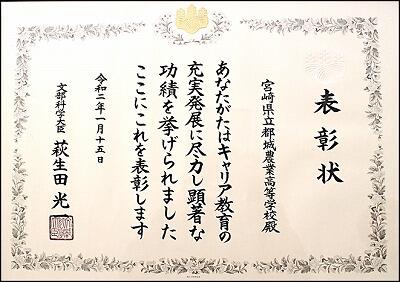 表彰状
宮崎県立都城農業高等学校殿
あなたがたはキャリア教育の
充実発展に尽力し顕著な
功績を挙げられました
ここにこれを表彰します
令和二年一月十五日
文部科学大臣 萩生田光